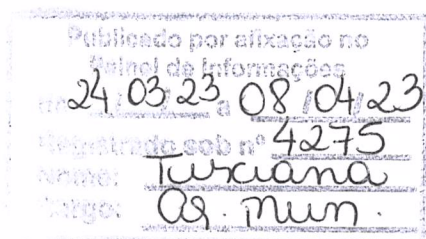 Publicado por afixação no
Painel de Informações
24 03 23 a 08/04/23
Registrado sob nº 4275
Nome: Tusciana
Cargo: Ag. mun.